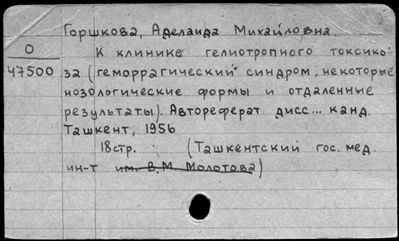 Горшкова, Аделаида Михайловна.
О
47500
К клинике гелиотропного токсико-
за (геморрагический синдром, некоторые
нозологические формы и отдаленные
результаты). Автореферат дисс... канд.
Ташкент, 1956
18стр. (Ташкентский гос. мед.
ин-т им. В.М. Молотова)